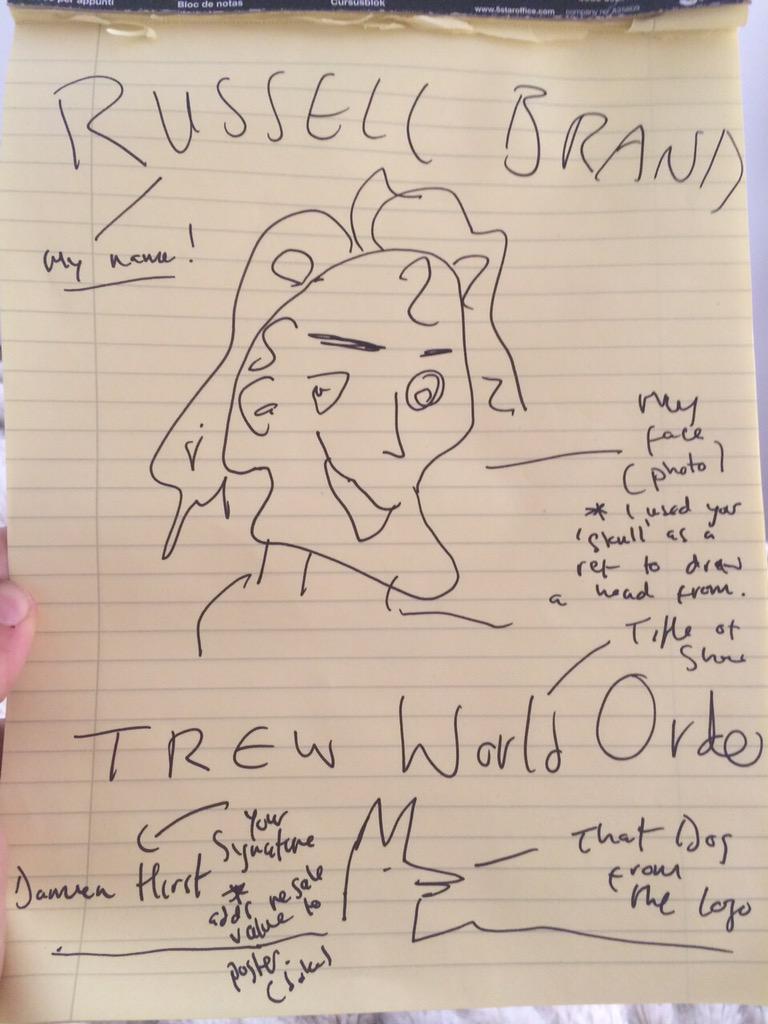 per appunti Bloc de notas Cursusblok www.5staroffice.com company ref
RUSSELL BRAND
My name!
My
face
(photo)
* I used your
'skull' as a
ref to draw
a head from.
Title of
Show
TREW World Order
Your
Signature
Damien Hirst
*
adds resale
value to
poster.
(joke)
That Dog
from
the logo